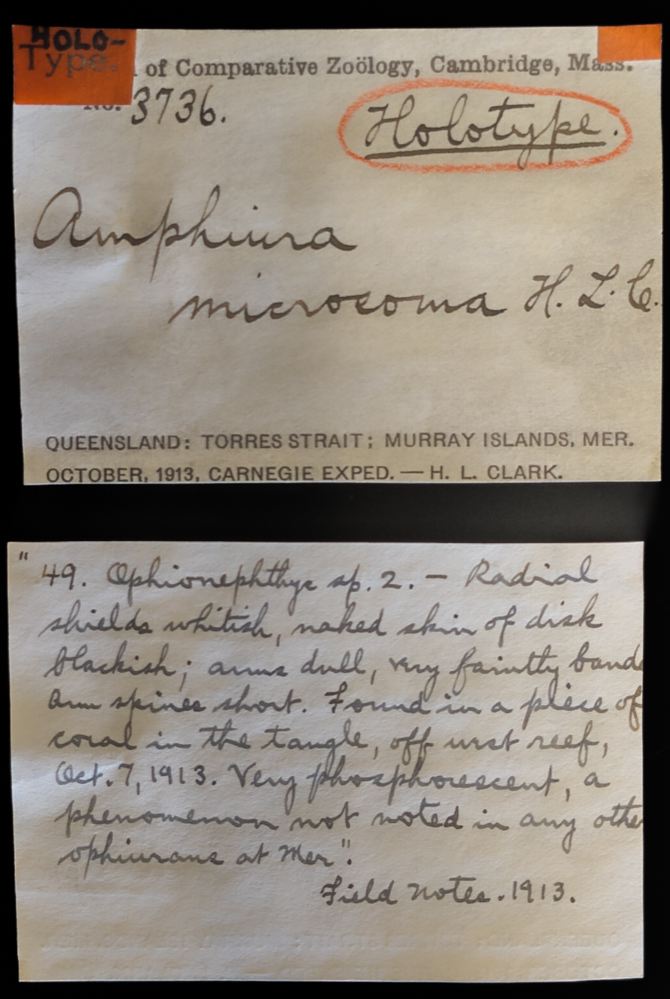 HOLO-
Type.
of Comparative Zoölogy, Cambridge, Mass.
No. 3736.
Holotype.
Amphiura
microsoma H. L. C.
QUEENSLAND: TORRES STRAIT; MURRAY ISLANDS, MER.
OCTOBER, 1913, CARNEGIE EXPED. — H. L. CLARK.
"49. Ophionephthys sp. 2. — Radial
shields whitish, naked skin of disk
blackish; arms dull, very faintly band
arm spines short. Found in a piece of
coral in the tangle, off west reef,
Oct. 7, 1913. Very phosphorescent, a
phenomenon not noted in any othe
ophiurans at Mer".
Field Notes. 1913.